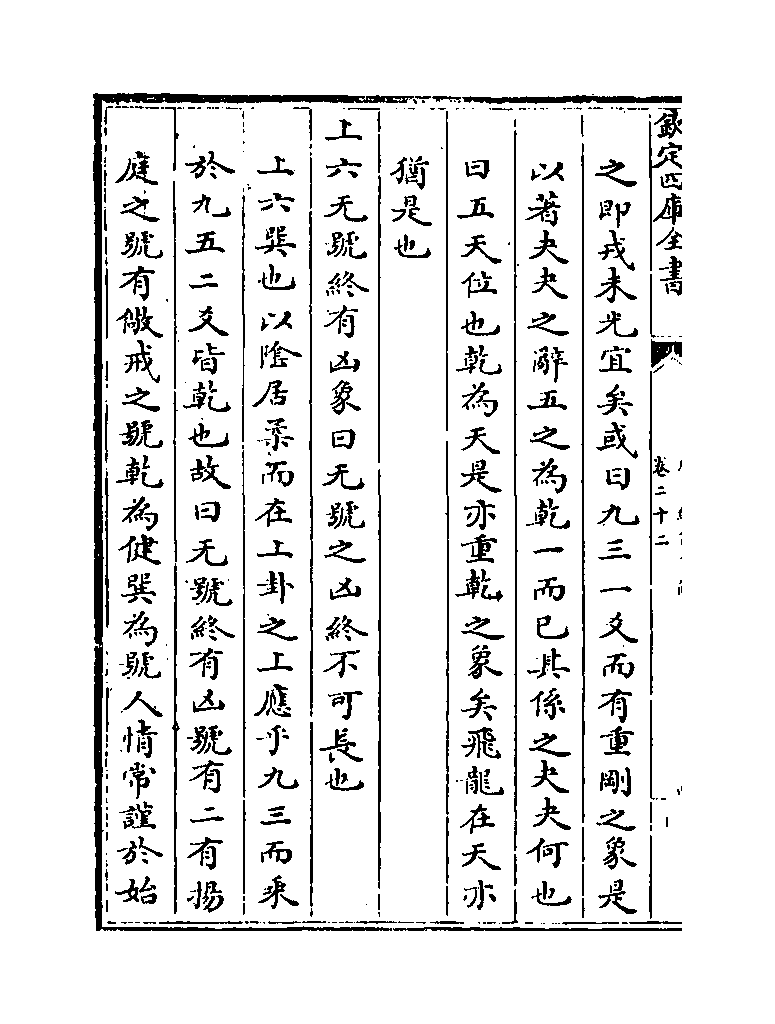 欽定四庫全書
卷二十二
之即戎未光宜矣或曰九三一爻而有重剛之象是
以著夬夬之辭五之為乾一而已其係之夬夬何也
曰五天位也乾為天是亦重乾之象矣飛龍在天亦
猶是也
上六无號終有凶象曰无號之凶終不可長也
上六巽也以陰居柔而在上卦之上應乎九三而乘
於九五二爻皆乾也故曰无號終有凶號有二有揚
庭之號有儆戒之號乾為健巽為號人情常謹於始